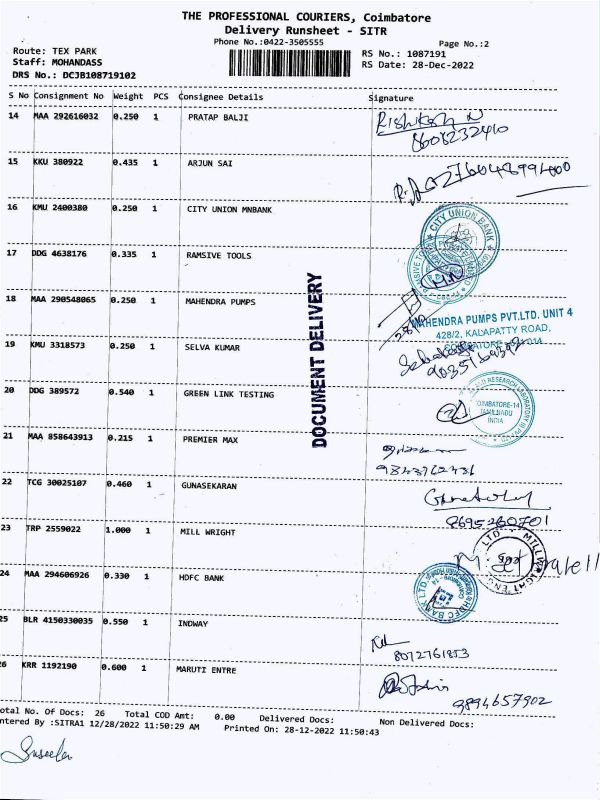 THE PROFESSIONAL COURIERS, Coimbatore
Delivery Runsheet - SITR
Phone No.:0422-3505555
Page No.:2
Route: TEX PARK
RS No.: 1087191
Staff: MOHANDASS
RS Date: 28-Dec-2022
DRS No.: DCJB108719102
S No Consignment No Weight PCS Consignee Details Signature
14 MAA 292616032 0.250 1 PRATAP BALJI
Rishikesh N
8608232410
15 KKU 380922 0.435 1 ARJUN SAI
16 KMU 2400380 0.250 1 CITY UNION MNBANK
CITY UNION BANK
17 DDG 4638176 0.335 1 RAMSIVE TOOLS
DOCUMENT DELIVERY
18 MAA 290548065 0.250 1 MAHENDRA PUMPS
MAHENDRA PUMPS PVT.LTD. UNIT 4
428/2, KALAPATTY ROAD,
19 KMU 3318573 0.250 1 SELVA KUMAR
20 DDG 389572 0.540 1 GREEN LINK TESTING
RESEARCH LABORATORY
COIMBATORE-14
TAMILNADU
INDIA
21 MAA 858643913 0.215 1 PREMIER MAX
22 TCG 30025107 0.460 1 GUNASEKARAN
8695260701
23 TRP 2559022 1.000 1 MILL WRIGHT
24 MAA 294606926 0.330 1 HDFC BANK
HDFC BANK LTD.
25 BLR 4150330035 0.550 1 INDWAY
8072761853
26 KRR 1192190 0.600 1 MARUTI ENTRE
9894657902
otal No. Of Docs: 26 Total COD Amt: 0.00 Delivered Docs: Non Delivered Docs:
ntered By :SITRA1 12/28/2022 11:50:29 AM Printed On: 28-12-2022 11:50:43